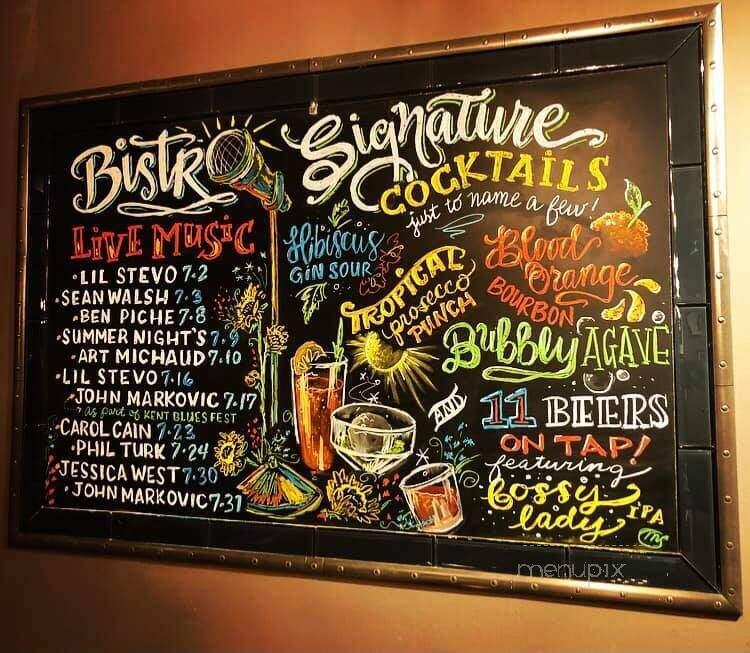 Bistro
LIVE MUSIC
• LIL STEVO 7·2
• SEAN WALSH 7·3
• BEN PICHE 7·8
• SUMMER NIGHT'S 7·9
• ART MICHAUD 7·10
• LIL STEVO 7·16
• JOHN MARKOVIC 7·17
as part of KENT BLUES FEST
• CAROL CAIN 7·23
• PHIL TURK 7·24
• JESSICA WEST 7·30
• JOHN MARKOVIC 7·31
Signature
COCKTAILS
just to name a few!
Hibiscus
GIN SOUR
TROPICAL
prosecco
PUNCH
Blood
Orange
BOURBON
Bubbly AGAVE
AND
11 BEERS
ON TAP!
featuring
bossy
lady IPA
MS
menupix